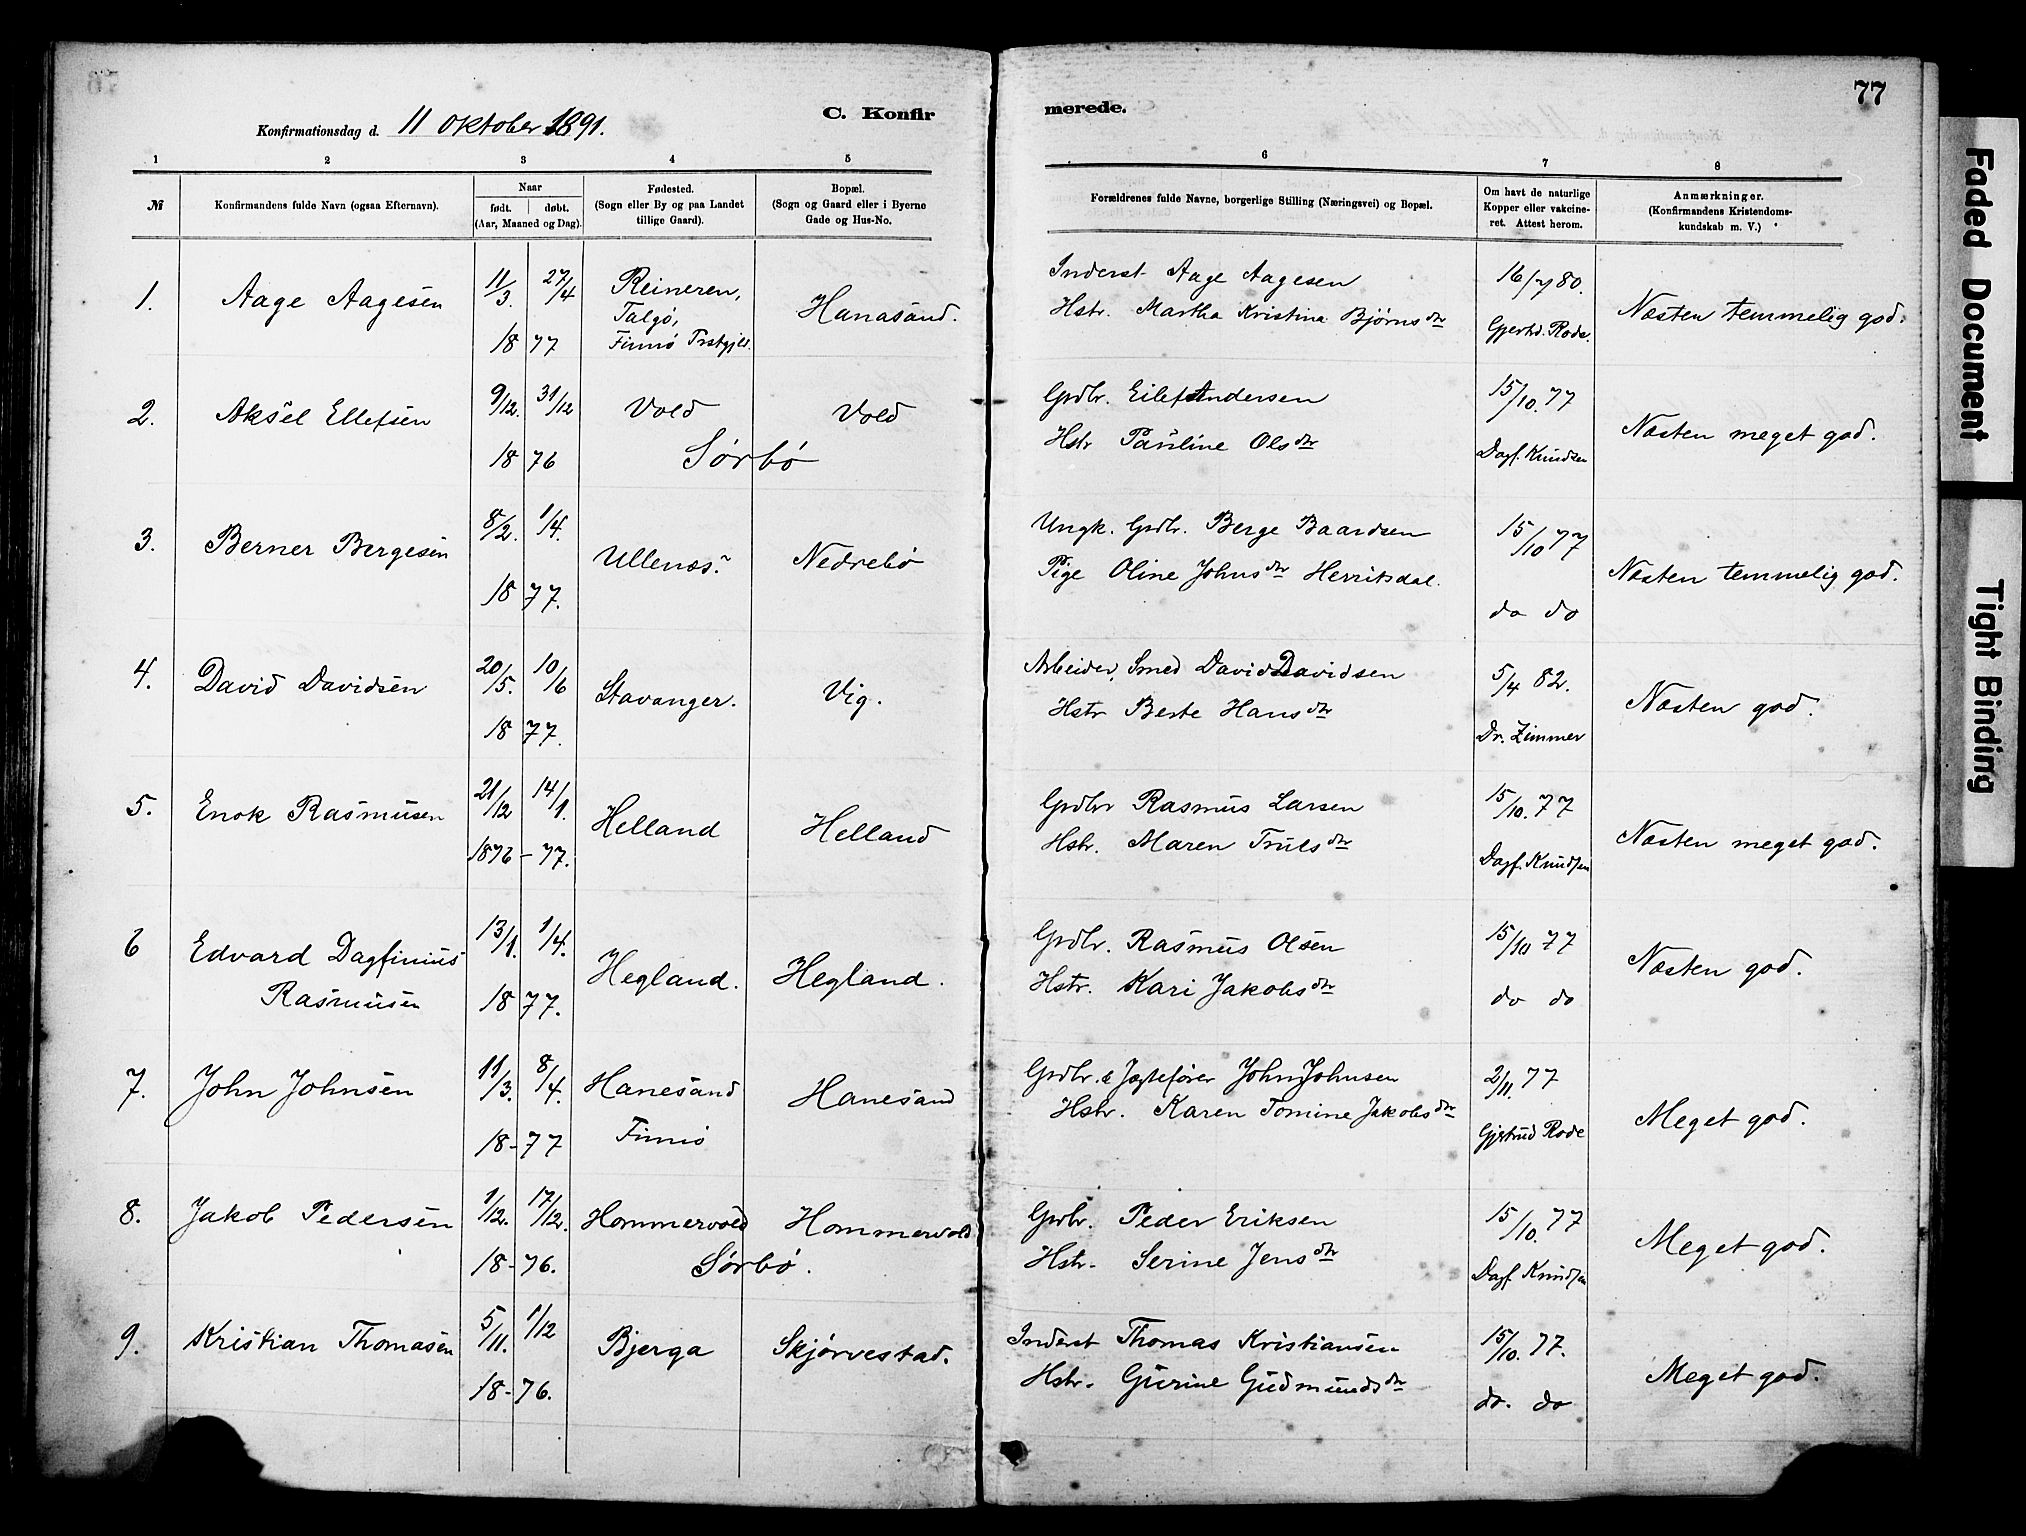 77
C. Konfir
merede.
Konfirmationsdag d. 11 Oktober 1891.
1 2 3 4 5 6 7 8
№
Konfirmandens fulde Navn (ogsaa Efternavn).
Naar
født. døbt.
(Aar, Maaned og Dag).
Fødested.
(Sogn eller By og paa Landet
tillige Gaard).
Bopæl.
(Sogn og Gaard eller i Byerne
Gade og Hus-No.
Forældrenes fulde Navne, borgerlige Stilling (Næringsvei) og Bopæl.
Om havt de naturlige
Kopper eller vakcine-
ret. Attest herom.
Anmærkninger.
(Konfirmandens Kristendoms-
kundskab m. V.)
1. Aage Aagesen 11/3. 27/4 18 77
Reineren,
Talgø,
Finnø Prstgjld.
Hanasand.
Inderst Aage Aagesen
Hstr. Martha Kristina Bjørns dtr
16/7 80.
Gjerhd. Rode.
Næsten temmelig god.
2. Aksel Ellefsen 9/12. 31/12 18 76
Vold Vold
Sørbø
Grdbr. Eilef Andersen
Hstr Pauline Ols dtr
15/10. 77
Dagf. Knudsen
Næsten meget god.
3. Berner Bergesen 8/2. 1/4. 18 77.
Ullenæs? Nedrebø
Ungk. Grdbr. Berge Baardsen
Pige Oline Johns dtr Hervitsdal.
15/10 77
do do
Næsten temmelig god.
4. David Davidsen 20/5. 10/6 18 77.
Stavanger. Vig.
Arbeider, Smed David Davidsen
Hstr Berte Hans dtr
5/4 82.
Dr. Zimmer
Næsten god.
5. Enok Rasmusen 21/12 14/1. 1876 - 77.
Helland Helland
Grdbr Rasmus Larsen
Hstr. Maren Truls dtr
15/10. 77
Dagf. Knudsen
Næsten meget god.
6 Edvard Dagfinius
Rasmusen
13/1. 1/4. 18 77.
Hegland. Hegland.
Grdbr. Rasmus Olsen
Hstr. Kari Jakobs dtr
15/10 77
do do
Næsten god.
7. John Johnsen 11/3. 8/4. 18-77
Hanesand
Finnø
Hanesand
Grdbr. & Jægtefører John Johnsen
Hstr. Karen Tomine Jakobs dtr
2/11. 77
Gjertrud Rode
Meget god.
8. Jakob Pedersen 1/12. 17/12. 18-76.
Hommervold Hommervold
Sørbø.
Grdbr. Peder Eriksen
Hstr. Serine Jens dtr
15/10. 77
Dagf Knudsen
Meget god.
9. Kristian Thomasen 5/11. 1/12 18-76.
Bjerga Skjørvestad.
Inderst Thomas Kristiansen
Hstr. Gurine Gudmunds dtr
15/10. 77.
do. do
Meget god.
Faded Document
Tight Binding